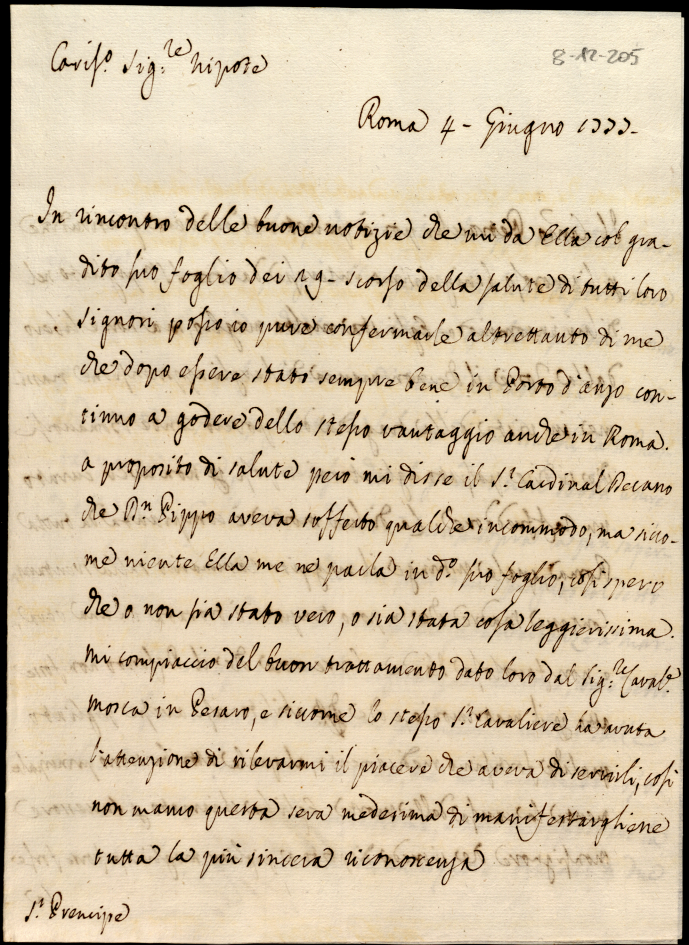 Cariss.o Sig.re Nipote
8-12-205
Roma 4 - Giugno 1777-
In rincontro delle buone notizie che mi dà Ella col gra-
dito suo foglio dei 29- scorso della salute di tutti loro
Signori posso io pure confermarle altrettanto di me
che dopo essere stato sempre bene in Porto d'anzo con-
tinuo a godere dello stesso vantaggio anche in Roma.
a proposito di salute però mi disse il S.r Cardinal Decano
che Dn Pippo aveva sofferto qualche incommodo, ma sicco-
me niente Ella me ne parla in d.o suo foglio, così spero
che o non sia stato vero, o sia stata cosa leggierissima.
Mi compiaccio del buon trattamento dato loro dal Sig.re Caval.e
Mosca in Pesaro, e siccome lo stesso S.r Cavaliere ha avuta
l'attenzione di rilevarmi il piacere che aveva di servirli, così
non manco questa sera medesima di manifestargliene
tutta la più sincera riconoscenza
S.r Prencipe